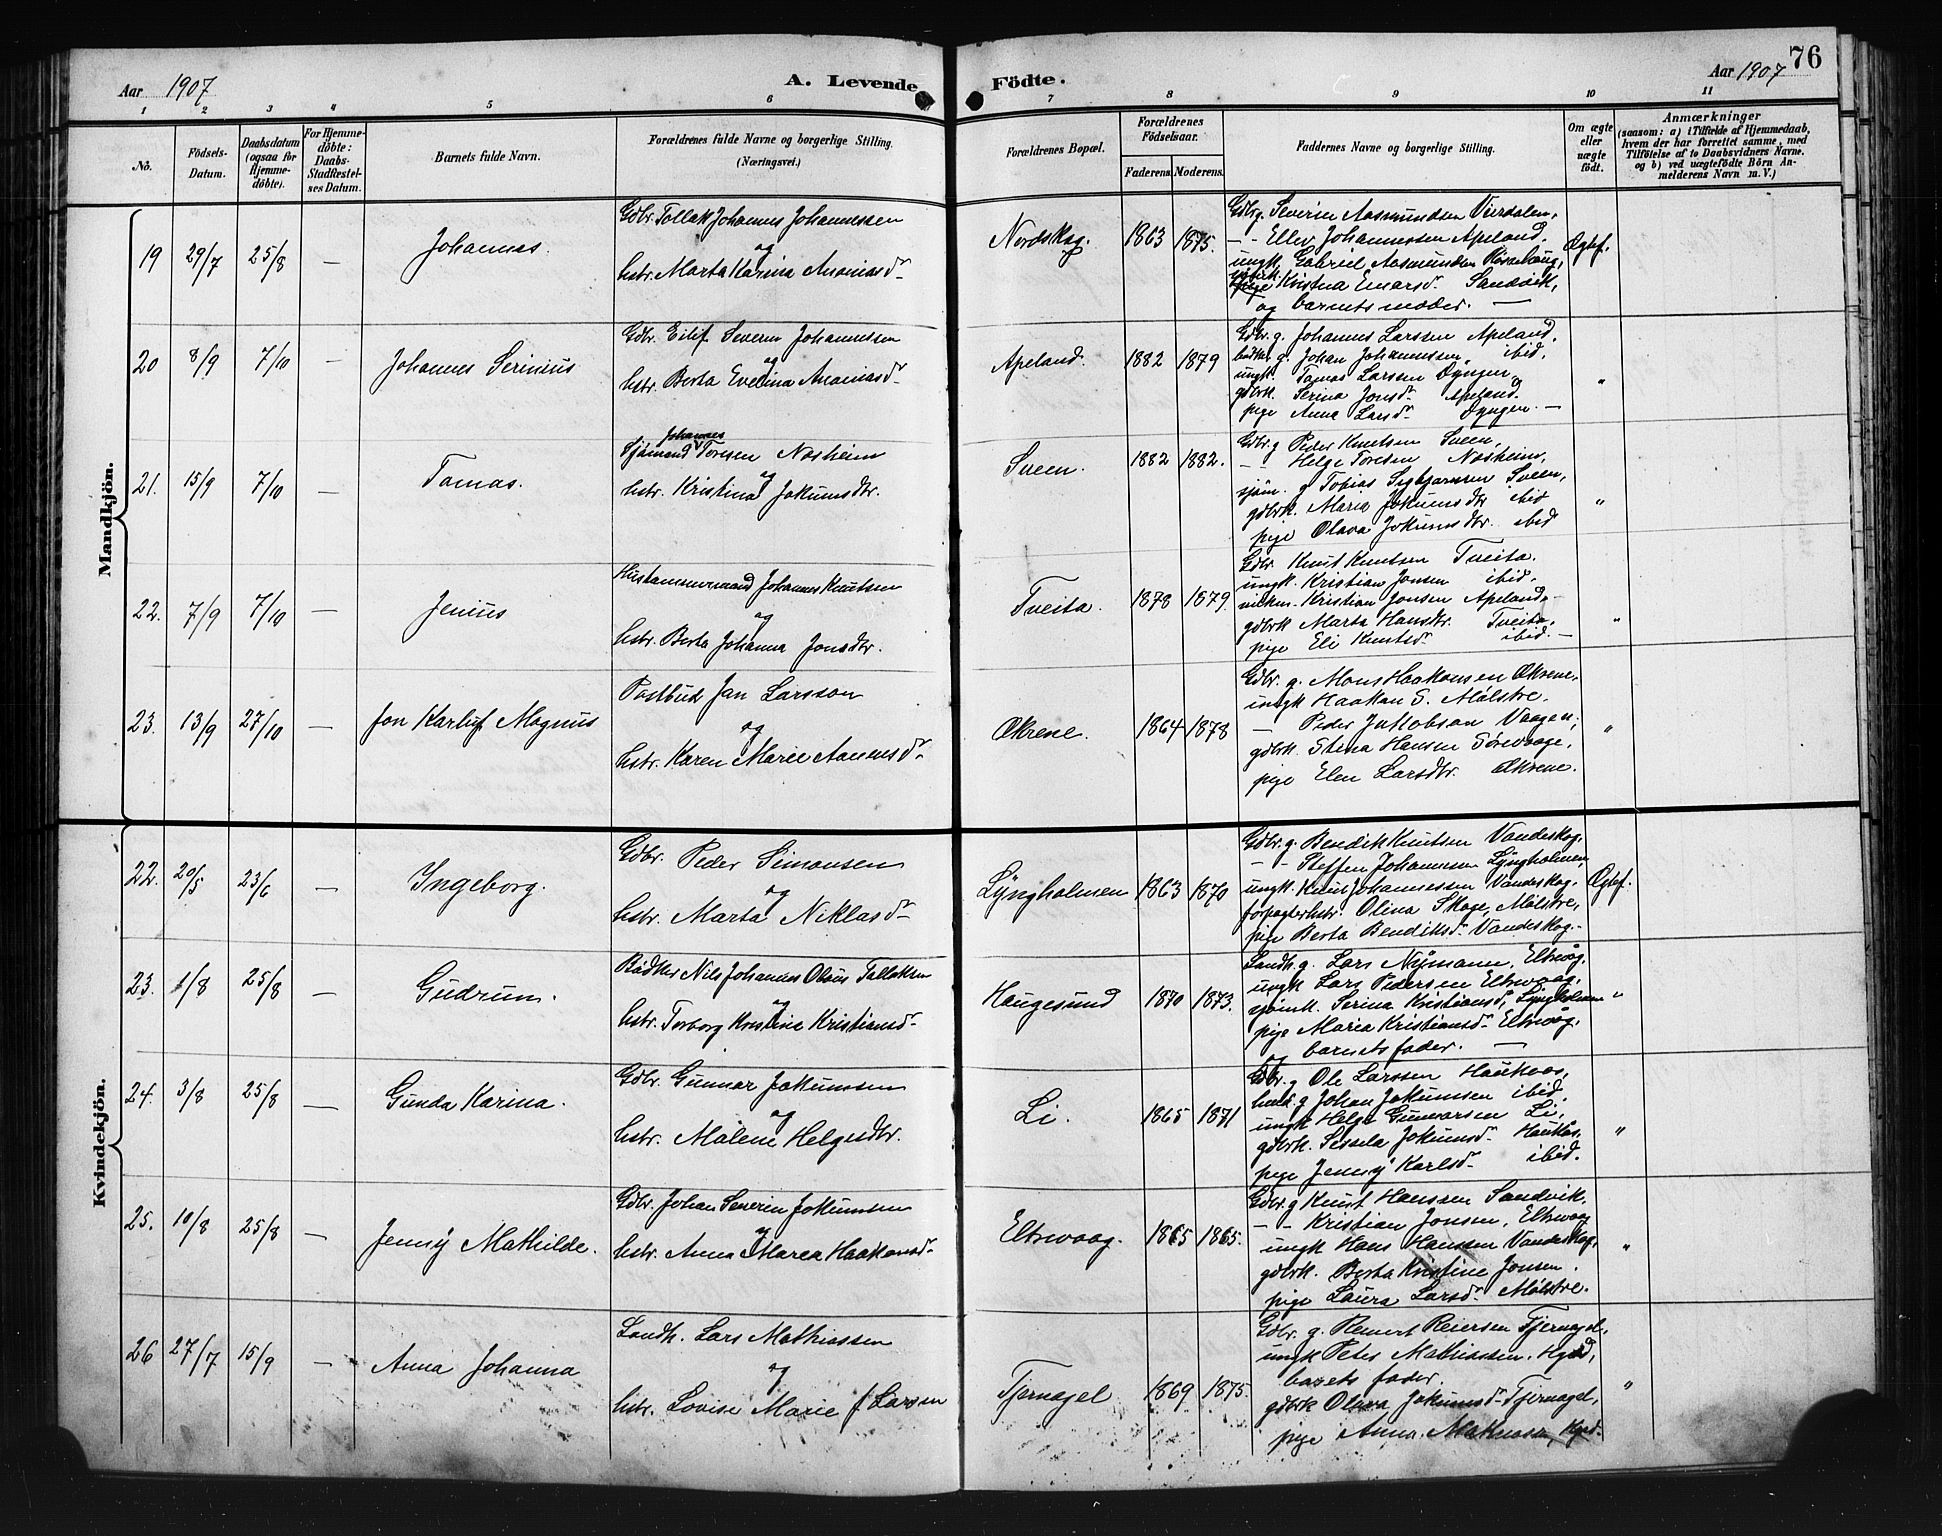 76
Aar 1907
A. Levende
Födte.
Aar 1907
1 2 3 4 5 6 7 8 9 10 11
No.
Födsels-Datum.
Daabsdatum (ogsaa for Hjemmedöbte).
For Hjemmedöbte: Daabs-Stadfestelses Datum.
Barnets fulde Navn.
Forældrenes fulde Navne og borgerlige Stilling. (Næringsvei.)
Forældrenes Bopæl.
Forældrenes Födselsaar.
Faderens Moderens.
Faddernes Navne og borgerlige Stilling.
Om ægte eller uægte födt.
Anmærkninger
(saasom: a) i Tilfælde af Hjemmedaab, hvem der har forrettet samme, med Tilföielse af to Daabsvidners Navne. og b) ved uægtefödte Börn Anmelderens Navn m. V.)
Mandkjön.
19 29/7 25/8 — Johannes.
Gdbr. Tollak Johannes Johannessen
og
hstr. Marta Karina Ananiasd.
Nordskog. 1863 1875.
Gdbrg. Severin Aasmundsen Vierdalen,
- - Ellev Johannessen Apeland.
ungk. Gabriel Aasmundsen
Kristina Einarsd. Sandvik,
og barnets moder. —
Ægtef.
20 8/9 7/10 — Johannes Serinius
Gdbr. Eilif Severin Johannesen
og
hstr. Berta Evelina Ananiasd.
Apeland. 1882 1879
Gdbr. g. Johannes Larssen Apeland.
g. Johan Johannessen, ibid.
ungk. Tomas Larssen Dyngen,
gdbrk. Serina Jonsd. Apeland.
pige Anna Larsd. Dyngen. —
"
21. 15/9 7/10 — Tomas.
Sjömand Johannes Toresen Nosheim
og
hstr. Kristina Jokumsdtr.
Sveen. 1882 1882.
Gdbr. g Peder Knutsen Sveen,
— Helge Toresen Nosheim,
sjöm. g Tobias Sveen,
gdbrk. Maria Jokumsdtr ibid
pige Olava Jokumsdtr. ibid
"
22. 7/9 7/10 — Jenius
Hustømmermand Johannes Knutsen
og
hstr. Berta Johanna Jonsdtr.
Tveita. 1878 1879
Gdbr. Knut Knutsen Tveita.
ungk. Kristian Jonsen ibid.
Kristian Jonsen Apeland.
gdbrk Marta Hansdtr. Tveita,
pige Eli Knutsd. ibid. —
"
23. 13/9 27/10 — Jon Karluf Magnus
Postbud Jan Larsson
og
hstr. Karen Marie
Økrene. 1864 1878
Gdbr. g. Mons Haakonsen Økrene,
ungk Haakon S. Mølstre.
— Peder Jakobson Vaagen,
gdbrk. Stina Hansen Sörevaage,
pige Elen Larsdtr. Økrene.
"
Kvindekjön.
22. 20/5 23/6 — Ingeborg.
Gdbr. Peder Simonsen
og
hstr. Marta Niklasd.
Lÿngholmen 1863 1870
Gdbr. g. Bendik Knutsen Vandeskog.
- - Steffen Johannesen Lÿngholmen,
ungk. Knut Johannessen Vandeskog.
forpagterhstr. Olina Skoge, Mølstre,
pige Berta Bendiksd. Vandeskog.
Ægtef.
23. 1/8 25/8 — Gudrun.
Bådker Nils Johannes Olaus Tollaksen
og
hstr. Torborg Kristine Kristiansd.
Haugesund 1870 1873.
Landh. g. Lars Nÿmann, Eltrvåg,
ungk Lars Pedersen Eltrvaag,
sjömk. Serina Kristiansd, Lÿngholmen
pige Maria Kristiansd. Eltrvåg.
og barnets fader. —
"
24. 3/8 25/8 — Gunda Karina.
Gdbr. Gunnar Jokumsen
og
hstr. Målene Helgesdtr.
Li. 1865 1871
Gdbr. g Ole Larssen Haukaas,
g Johan Jokumsen ibid.
ungk Helge Gunnarsen Li,
gdbrk. Sissela Jokumsd. Haukås.
pige Jennÿ Karlsd. ibid.
"
25. 10/8 25/8 — Jennÿ Mathilde.
Gdbr. Johan Severin Jokumsen
og
hstr. Anna Marea Haakonsd.
Eltrvaag. 1865 1865.
Gdbr. g Knut Hanssen Sandvik,
- - Kristian Jonsen, Eltrvaag
ungk Hans Hanssen Vandeskog,
gdbrk. Berta Kristine Jonsen.
pige Laura Larsd. Mølstre.
"
26 27/7 15/9 — Anna Johanna
Landh. Lars Mathiassen
og
hstr. Lovise Marie f. Larsen
Tjernagel. 1869 1875.
Gdbr. g. Reinert Reiersen Tjernagel,
ungk Peter Mathiassen, Hgsd,
barnets fader.
gdbrk Olava Jokumsd. Tjernagel,
pige Anna Mathiassen, Hgsd.
"